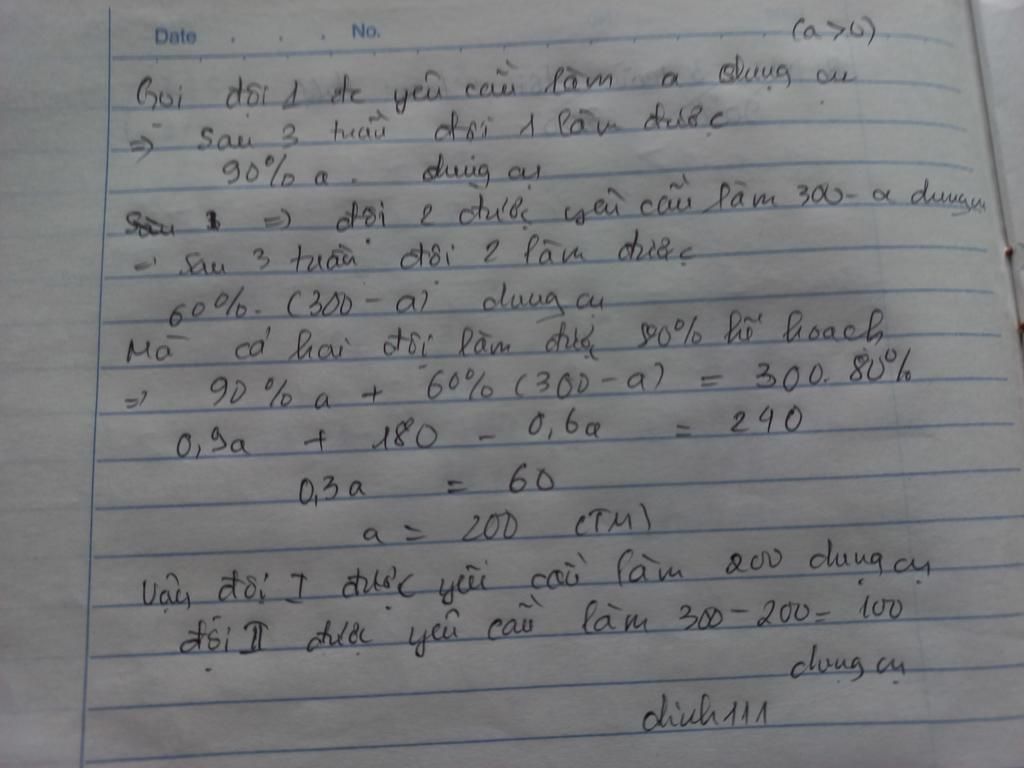 Date . . . No.
(a>0)
Gọi đội 1 đc yêu cầu làm a dụng cụ
=> Sau 3 tuần đội 1 làm được
90% a. dụng cụ
=> đội 2 được yêu cầu làm 300-a dụng cụ
=> sau 3 tuần đội 2 làm được
60%. (300-a) dụng cụ
Mà cả hai đội làm được 80% kế hoạch
=> 90% a + 60% (300-a) = 300. 80%
0,9a + 180 - 0,6a = 240
0,3a = 60
a = 200 (TM)
Vậy đội I được yêu cầu làm 200 dụng cụ
đội II được yêu cầu làm 300-200=100
dụng cụ
dinh111